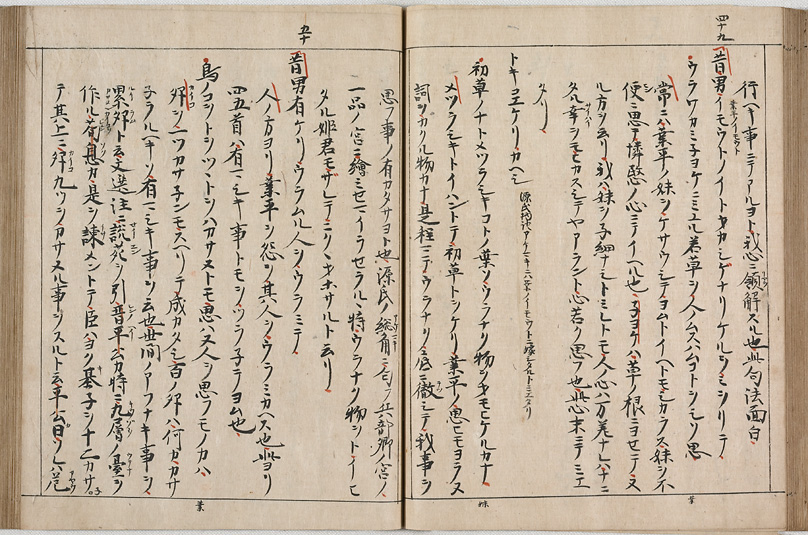 四十九
行ヘキ事ニテアルヨト我心ニ領解スル也此句法面白
昔男イモウトノイトヲカシゲナリケルヲミヲリテ
業平ノイモウト
ウラワカミネヨケニミユル若草ヲ人ノムスハムコトヲシソ思
常ニハ業平ノ妹ヲケサウシテヨムトイヘトモシカラス妹ヲ不
便ニ思テ憐愍ノ心ニテイヘル也子ヨケハ草ノ根ニヨセテ又
ル方ヲ云リ我ハ妹ヲ子細ナシトミレトモ人心ハ万差ナレハナニ
タル幸ヲモヒカスシテヤアラント心苦ク思フ也此心末ニテミエ
タリ
トキコエケリカヘシ
初草ノナトメツラシキコトノ葉ソウラナク物ヲオモヒケルカナ
メツラシキトイハントテ初草トヲケリ業平ノ思ヒモヨラヌ
詞ヲカクル物カナ是程ニテウラナクノ底ニ徹シテ我事ヲ
妹
葉
五十
思フ事ノ有カタサヨト也源氏ノ総角ニ匂フ兵部卿ノ宮ノ
一品ノ宮ニ繪ミセニイラセラル特ウラナク物ヲトイヒ
タル姫君モザレテニクヽオホサルト云リ
昔男有ケリウラムル人ヲウラミテ
人ノ方ヨリ業平ヲ怨ヲ其人ヲウラミカヘス也此ヨリ
四五首ハ有マシキ事トモヲツラ子テヨム也
鳥ノコヲトヲツヽトヲハカサヌトモ思ハヌ人ヲ思フモノカハ
卵ヲ一ツカサ子ンモスヘリテ成カタシ百ノ卵ハ何カカサ
子ラルヘキソ有マシキ事ヲ云也世間ノアフナキ事ヲ
累卵ト云文選注ニ説苑ヲ引晋平公カ特ニ九層ノ臺ヲ
作ル荀息カ是ヲ諫メントテ臣ハヨク碁子ヲ十二カサ子
テ其上ニ卵九ツヲカサヌル事ヲスルト云平公曰
葉